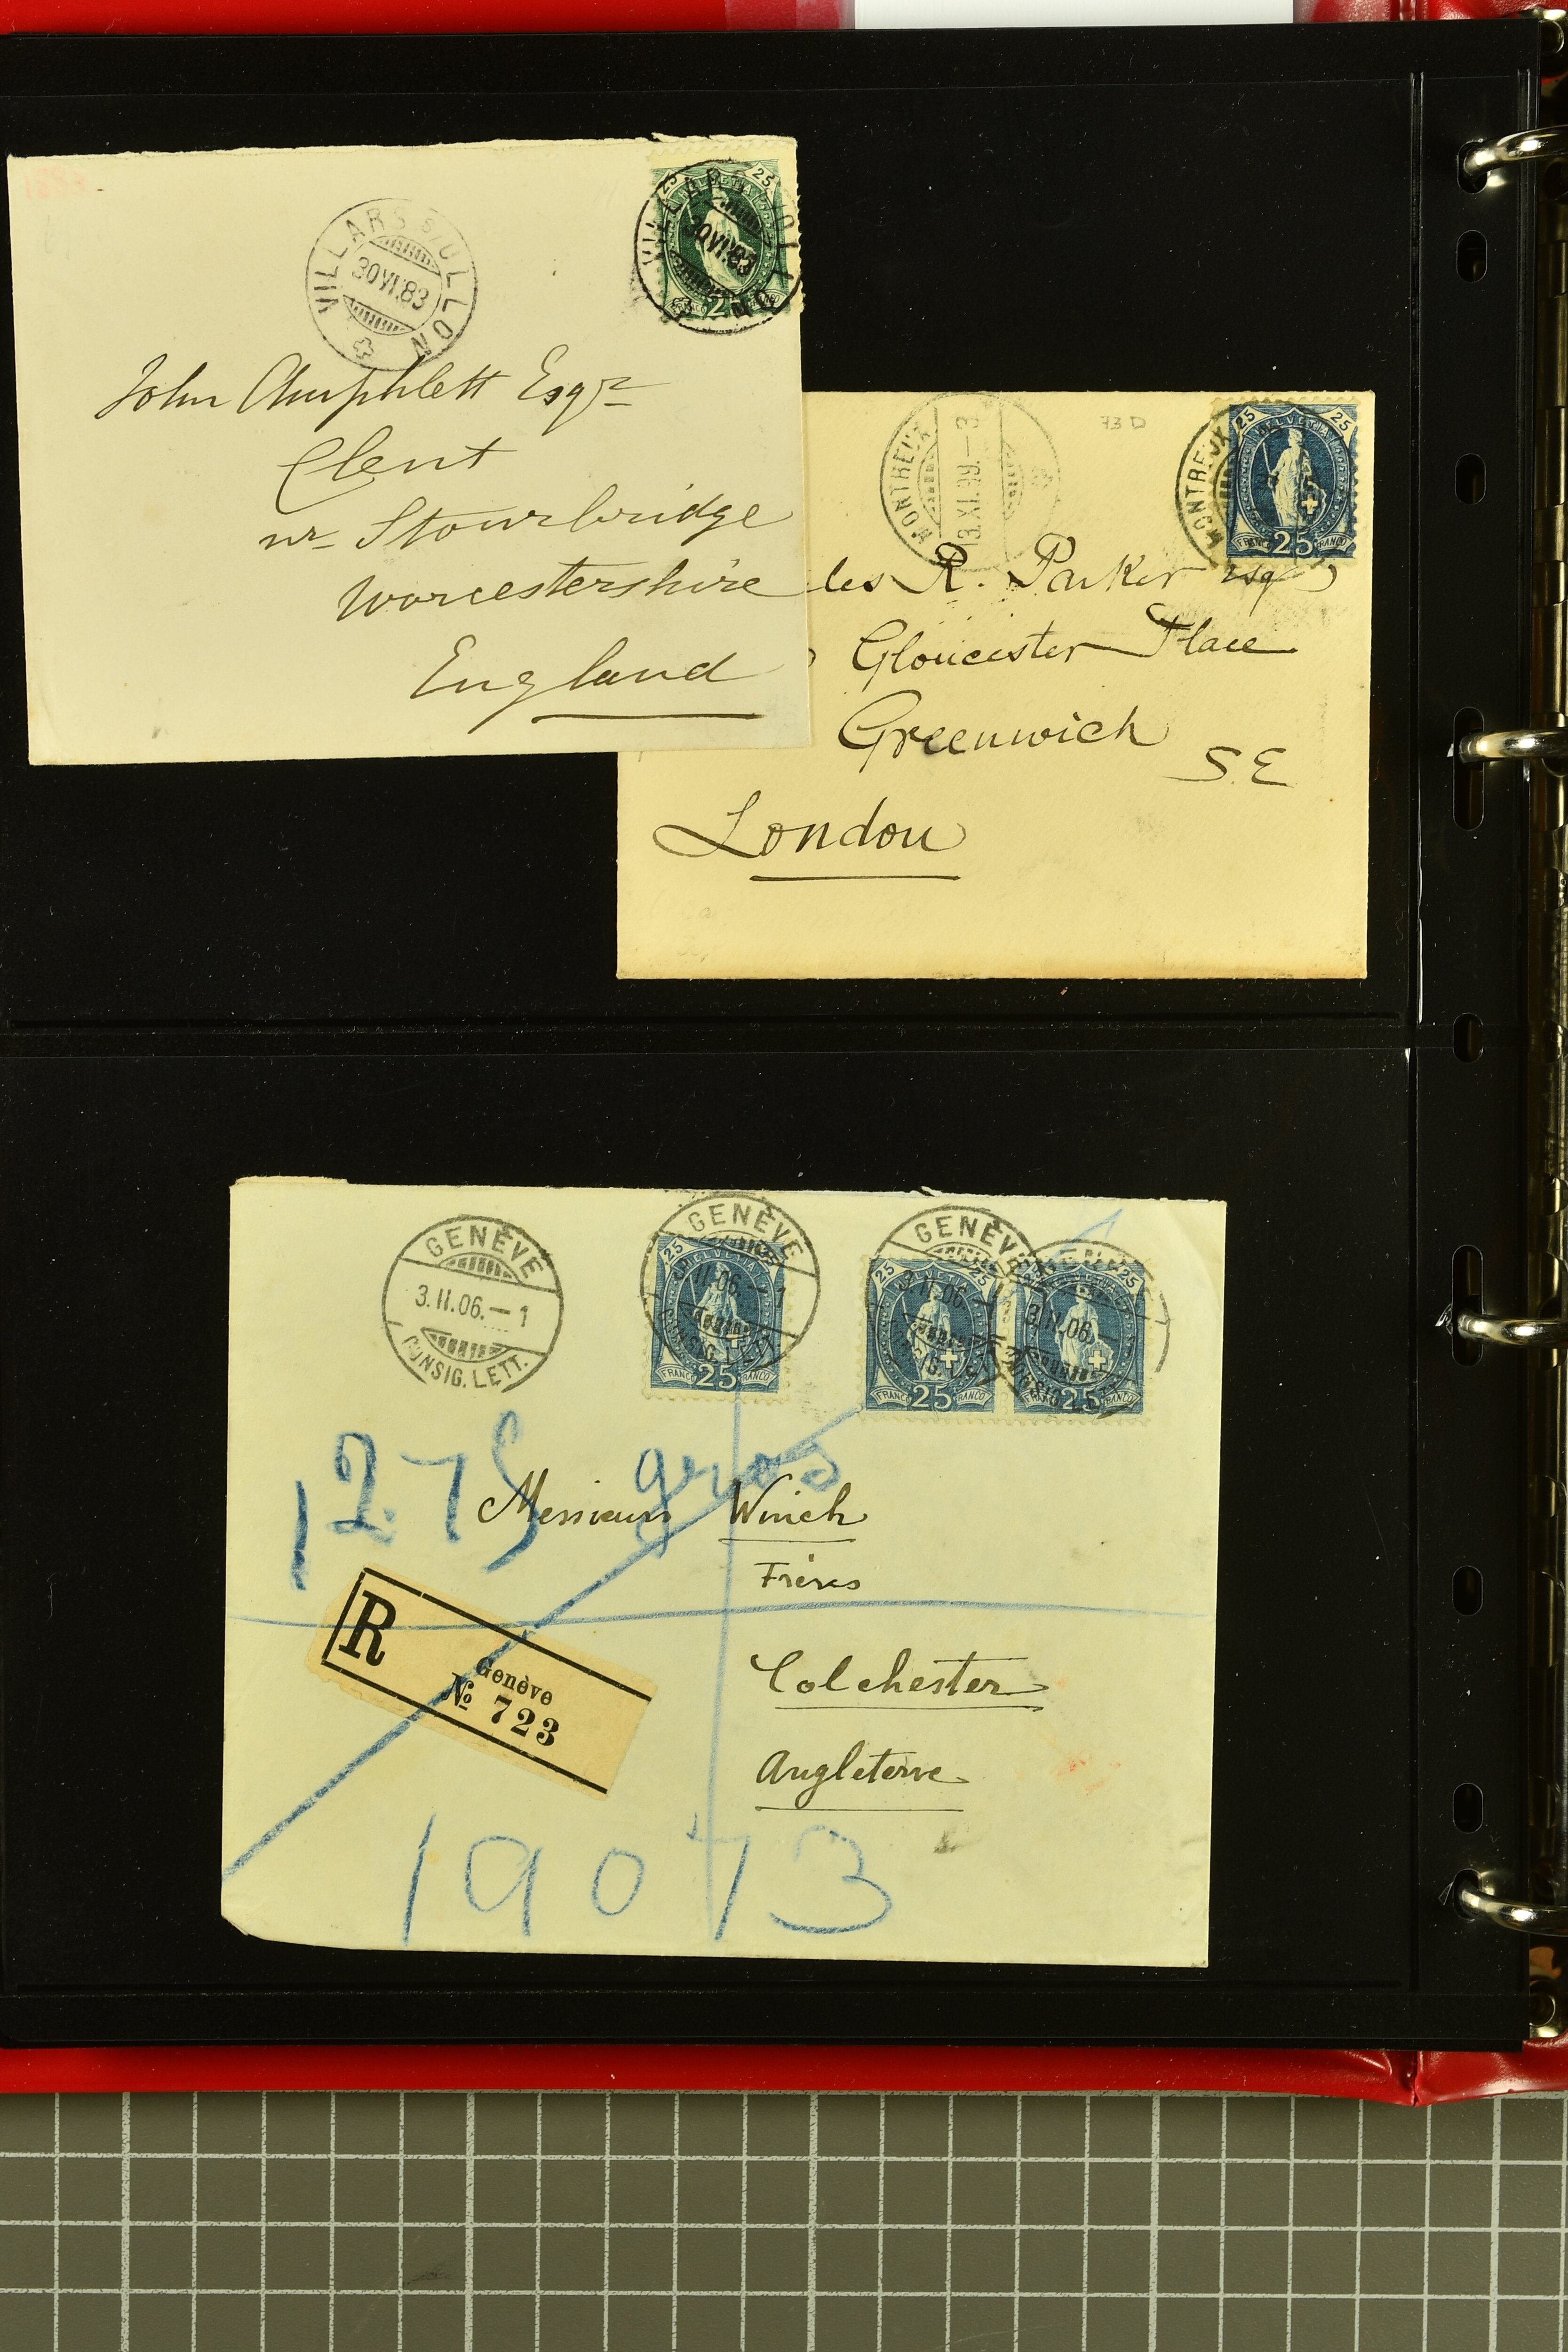 VILLARS S/OLLON
30 VI.83
25 HELVETIA 25
VILLARS OLLON
30 VI.83
25
John Amphlett Esqr
Clent
nr Stourbridge
Worcestershire
England
MONTREUX
13.XI.99.—3
73 D
MONTREUX
25 HELVETIA 25
FRANCO 25 FRANCO
les R. Parker Esq
Gloucester Place
Greenwich
S.E
London
GENÈVE
3.II.06.—1
CONSIG. LETT.
GENÈVE
II.06.—1
CONSIG.
25 HELVETIA
FRANCO 25 FRANCO
GENÈVE
3.II.06.—
25 25
FRANCO 25 FRANCO
3.II.06.—
25
25 FRANCO
127 5 gros
Messieurs Winch
Frères
Colchester
Angleterre
R
Genève
№ 723
19073